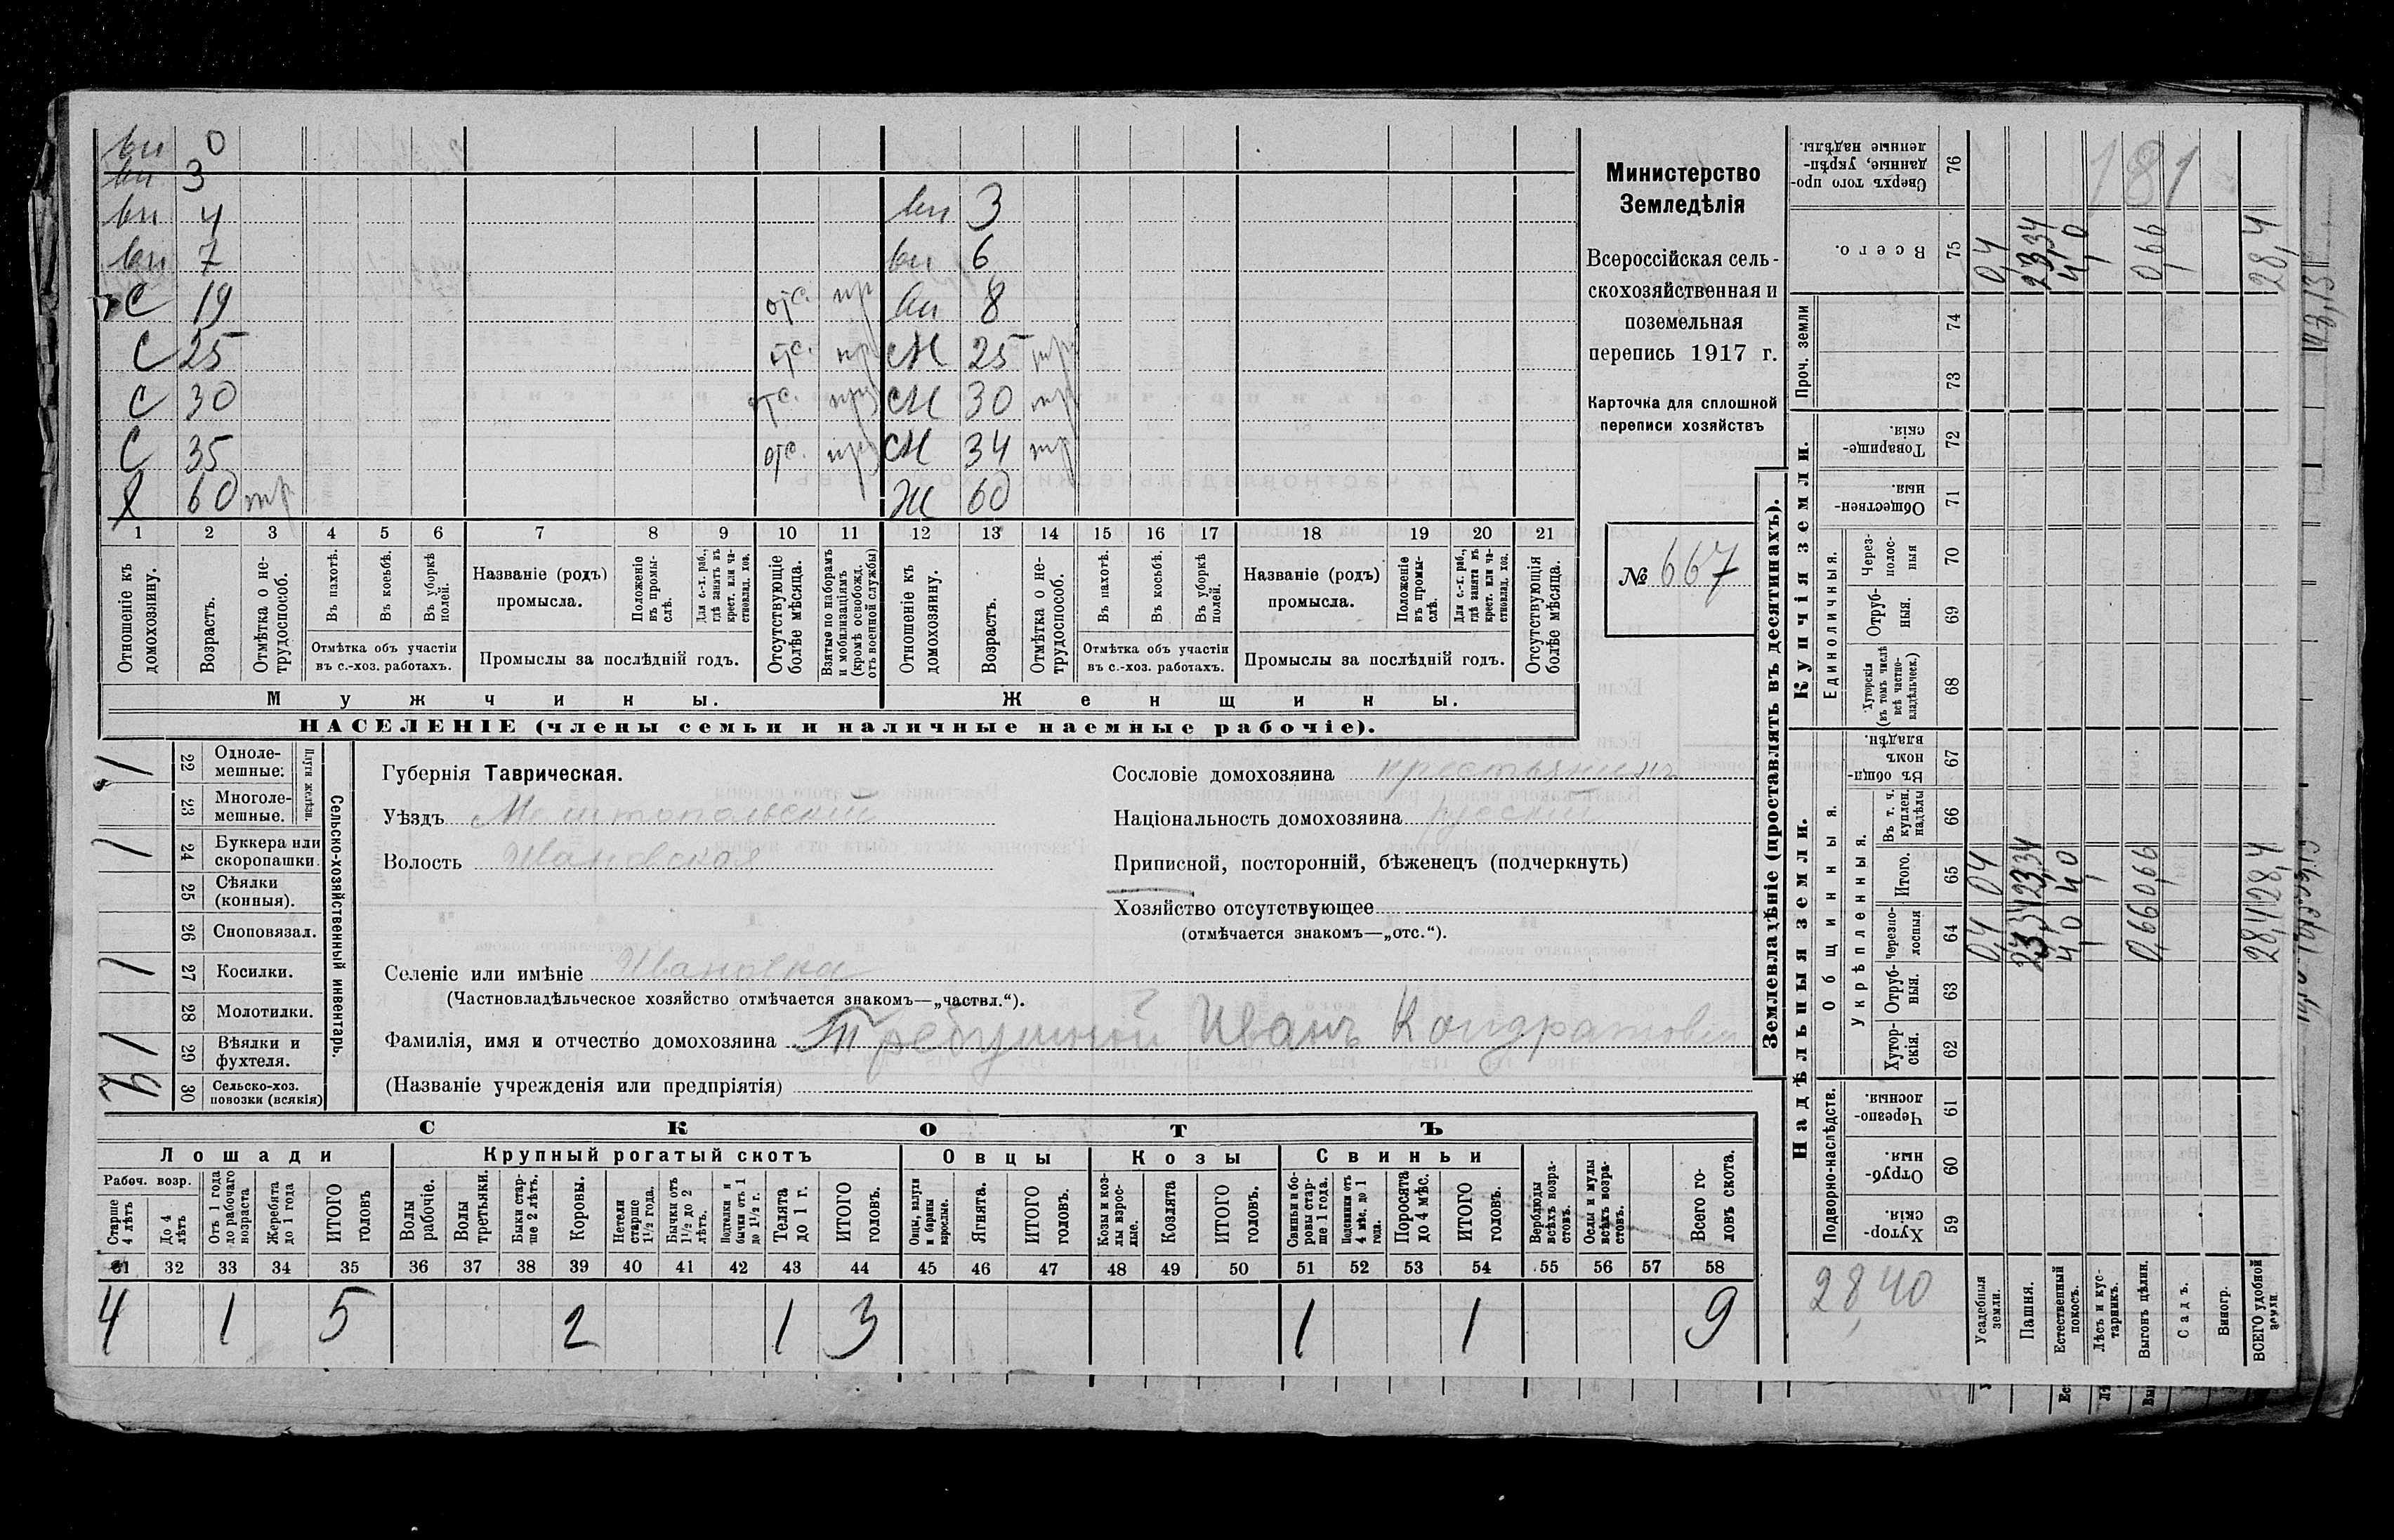 вн 0
вн 3
вн 4 вн 3
вн 7 вн 6
с 19 отс. пр вн 8
с 25 отс. пр сн 25 тр
с 30 отс. пр сн 30 тр
с 35 отс. пр сн 34 тр
Х 60 тр Ж 60
1 2 3 4 5 6 7 8 9 10 11 12 13 14 15 16 17 18 19 20 21
Отношеніе къ домохозяину.
Возрастъ.
Отмѣтка о не-трудоспособ.
Въ пахотѣ.
Въ косьбѣ.
Въ уборкѣ полей.
Отмѣтка объ участіи
въ с.-хоз. работахъ.
Названіе (родъ)
промысла.
Положеніе въ промы-слѣ.
Для с.-х. раб., гдѣ занятъ въ крест. или ча-стновлад. хоз.
Промыслы за послѣдній годъ.
Отсутствующіе болѣе мѣсяца.
Взятые по наборамъ и мобилизаціямъ (кромѣ освобожд. отъ военной службы)
Отношеніе къ домохозяину.
Возрастъ.
Отмѣтка о не-трудоспособ.
Въ пахотѣ.
Въ косьбѣ.
Въ уборкѣ полей.
Отмѣтка объ участіи
въ с.-хоз. работахъ.
Названіе (родъ)
промысла.
Положеніе въ промы-слѣ.
Для с.-х. раб., гдѣ занята въ крест. или ча-стновлад. хоз.
Промыслы за послѣдній годъ.
Отсутствующія болѣе мѣсяца.
Мужчины. Женщины.
НАСЕЛЕНІЕ (члены семьи и наличные наемные рабочіе).
Министерство
Земледѣлія
Всероссійская сель-
скохозяйственная и
поземельная
перепись 1917 г.
Карточка для сплошной
переписи хозяйствъ
№ 667
Сельско-хозяйственный инвентарь.
Плуги желѣзн.
1 22 Одноле-мешные:
23 Многоле-мешные.
1 24 Буккера или скоропашки.
25 Сѣялки (конныя).
26 Сноповязал.
1 27 Косилки.
28 Молотилки.
1 29 Вѣялки и фухтеля.
30 Сельско-хоз. повозки (всякія)
Губернія Таврическая.
Уѣздъ Мелитопольскій
Волость Ивановская
Сословіе домохозяина крестьянинъ
Національность домохозяина русскій
Приписной, посторонній, бѣженецъ (подчеркнуть)
Хозяйство отсутствующее
(отмѣчается знакомъ—„отс.“).
Селеніе или имѣніе Ивановка
(Частновладѣльческое хозяйство отмѣчается знакомъ—„частвл.“).
Фамилія, имя и отчество домохозяина Требушной Иванъ Кондратовичъ
(Названіе учрежденія или предпріятія)
СКОТЪ
Лошади Крупный рогатый скотъ Овцы Козы Свиньи
Рабоч. возр.
Старше 4 лѣтъ
До 4 лѣтъ
Отъ 1 года до рабочаго возраста
Жеребята до 1 года
ИТОГО головъ
Волы рабочіе.
Волы третьяки.
Быки стар-ше 2 лѣтъ.
Коровы.
Нетели старше 1½ года.
Бычки отъ 1½ до 2 лѣтъ.
Подтелки и бычки отъ 1 до 1½ г.
Телята до 1 г.
ИТОГО головъ.
Овцы, валухи и бараны взрослые.
Ягнята.
ИТОГО головъ.
Козы и коз-лы взрос-лые.
Козлята
ИТОГО головъ.
Свиньи и бо-ровы стар-ше 1 года.
Подсвинки отъ 4 мѣс. до 1 года.
Поросята до 4 мѣс.
ИТОГО головъ.
Верблюды всѣхъ возра-стовъ.
Ослы и мулы всѣхъ возра-стовъ.
Всего го-ловъ скота.
31 32 33 34 35 36 37 38 39 40 41 42 43 44 45 46 47 48 49 50 51 52 53 54 55 56 57 58
4 1 5 2 1 3 1 1 9
Землевладѣніе (проставлять въ десятинахъ).
Надѣльныя земли. Купчія земли. Проч. земли
Подворно-наслѣдств. Общинныя. Единоличныя.
Укрѣпленныя.
Хутор-скія 59
Отруб-ныя. 60
Черезпо-лосныя. 61
Хутор-скія. 62
Отруб-ныя. 63
Черезпо-лосныя 64
Итого. 65
Въ т. ч. куплен. надѣлы 66
Въ общи-номъ владѣн. 67
Хуторскія (въ томъ числѣ всѣ частно-владѣльческ.) 68
Отруб-ныя. 69
Через-полос-ныя 70
Обществен-ныя. 71
Товарище-скія. 72
73
74
Всего. 75
Сверхъ того про-данные, укрѣп-ленные надѣлы. 76
Усадебныя земли. 0,4 0,4 0,4
Пашня. 23,34 23,34 23,34
Естественный покосъ. 4,0 4,0 4,0
Лѣсъ и кус-тарникъ.
Выгонъ цѣлин. 0,66 0,66 0,66
Садъ.
Виногр.
ВСЕГО удобной земли. 28,4 28,4 28,4
28,40
181